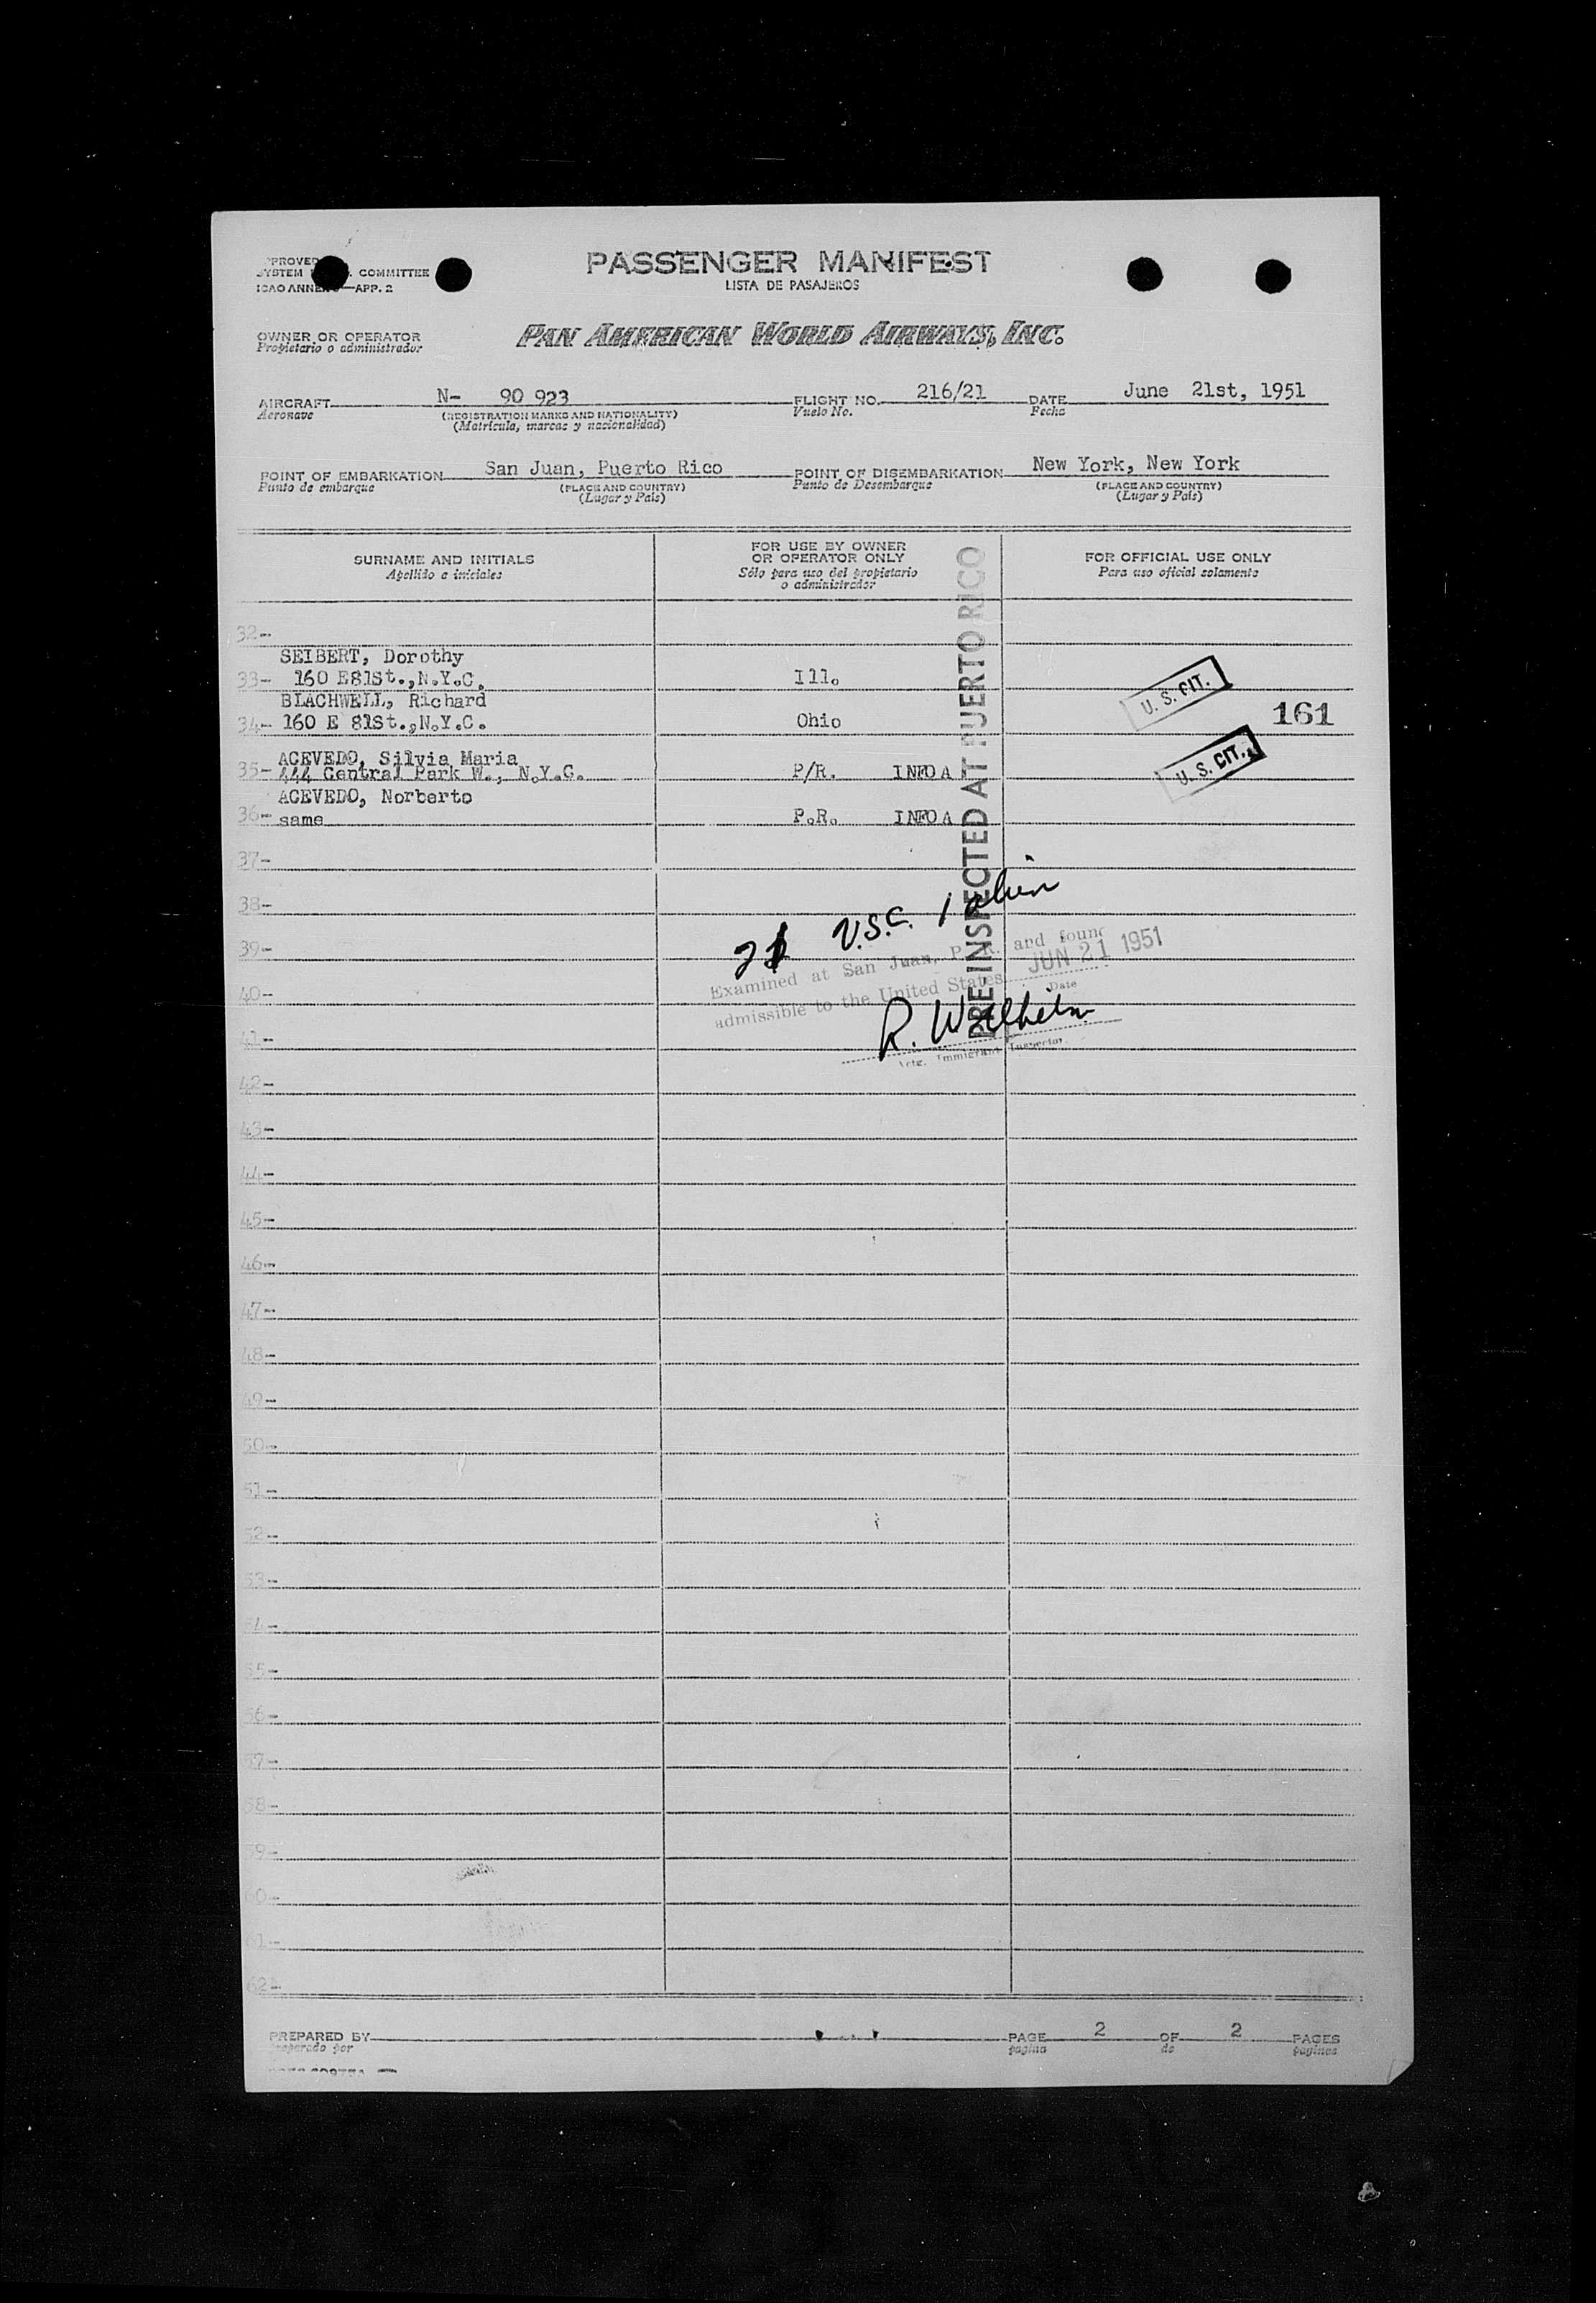 COMMITTEE
APP. 2
PASSENGER MANIFEST
LISTA DE PASAJEROS
OWNER OR OPERATOR
Propietario o administrador
PAN AMERICAN WORLD AIRWAYS, INC.
AIRCRAFT N- 90 923 FLIGHT NO. 216/21 DATE June 21st, 1951
Aeronave (REGISTRATION MARKS AND NATIONALITY) Vuelo No. Fecha
(Matricula, marcas y nacionalidad)
POINT OF EMBARKATION San Juan, Puerto Rico POINT OF DISEMBARKATION New York, New York
Punto de embarque (PLACE AND COUNTRY) Punto de Desembarque (PLACE AND COUNTRY)
(Lugar y País) (Lugar y País)
SURNAME AND INITIALS
Apellido e iniciales
FOR USE BY OWNER
OR OPERATOR ONLY
Sólo para uso del propietario
o administrador
FOR OFFICIAL USE ONLY
Para uso oficial solamente
PRE-INSPECTED AT PUERTO RICO
32-
SEIBERT, Dorothy
33- 160 E81St.,N.Y.C. Ill. U. S. CIT.
BLACHWELL, Richard
34- 160 E 81St.,N.Y.C. Ohio 161
ACEVEDO, Silvia Maria
35- 444 Central Park W., N.Y.C. P/R. INFO A U. S. CIT.
ACEVEDO, Norberto
36- same P.R. INFO A
37-
38-
U.S.C. 1 alien
39-
Examined at San Juan, P. R. and found
JUN 21 1951
Date
admissible to the United States
40-
R. Wilhelm
Immigrant Inspector
41-
42-
43-
44-
45-
46-
47-
48-
49-
50-
51-
52-
53-
54-
55-
56-
57-
58-
59-
60-
61-
62-
PREPARED BY PAGE 2 OF 2 PAGES
Preparado por pagina de paginas